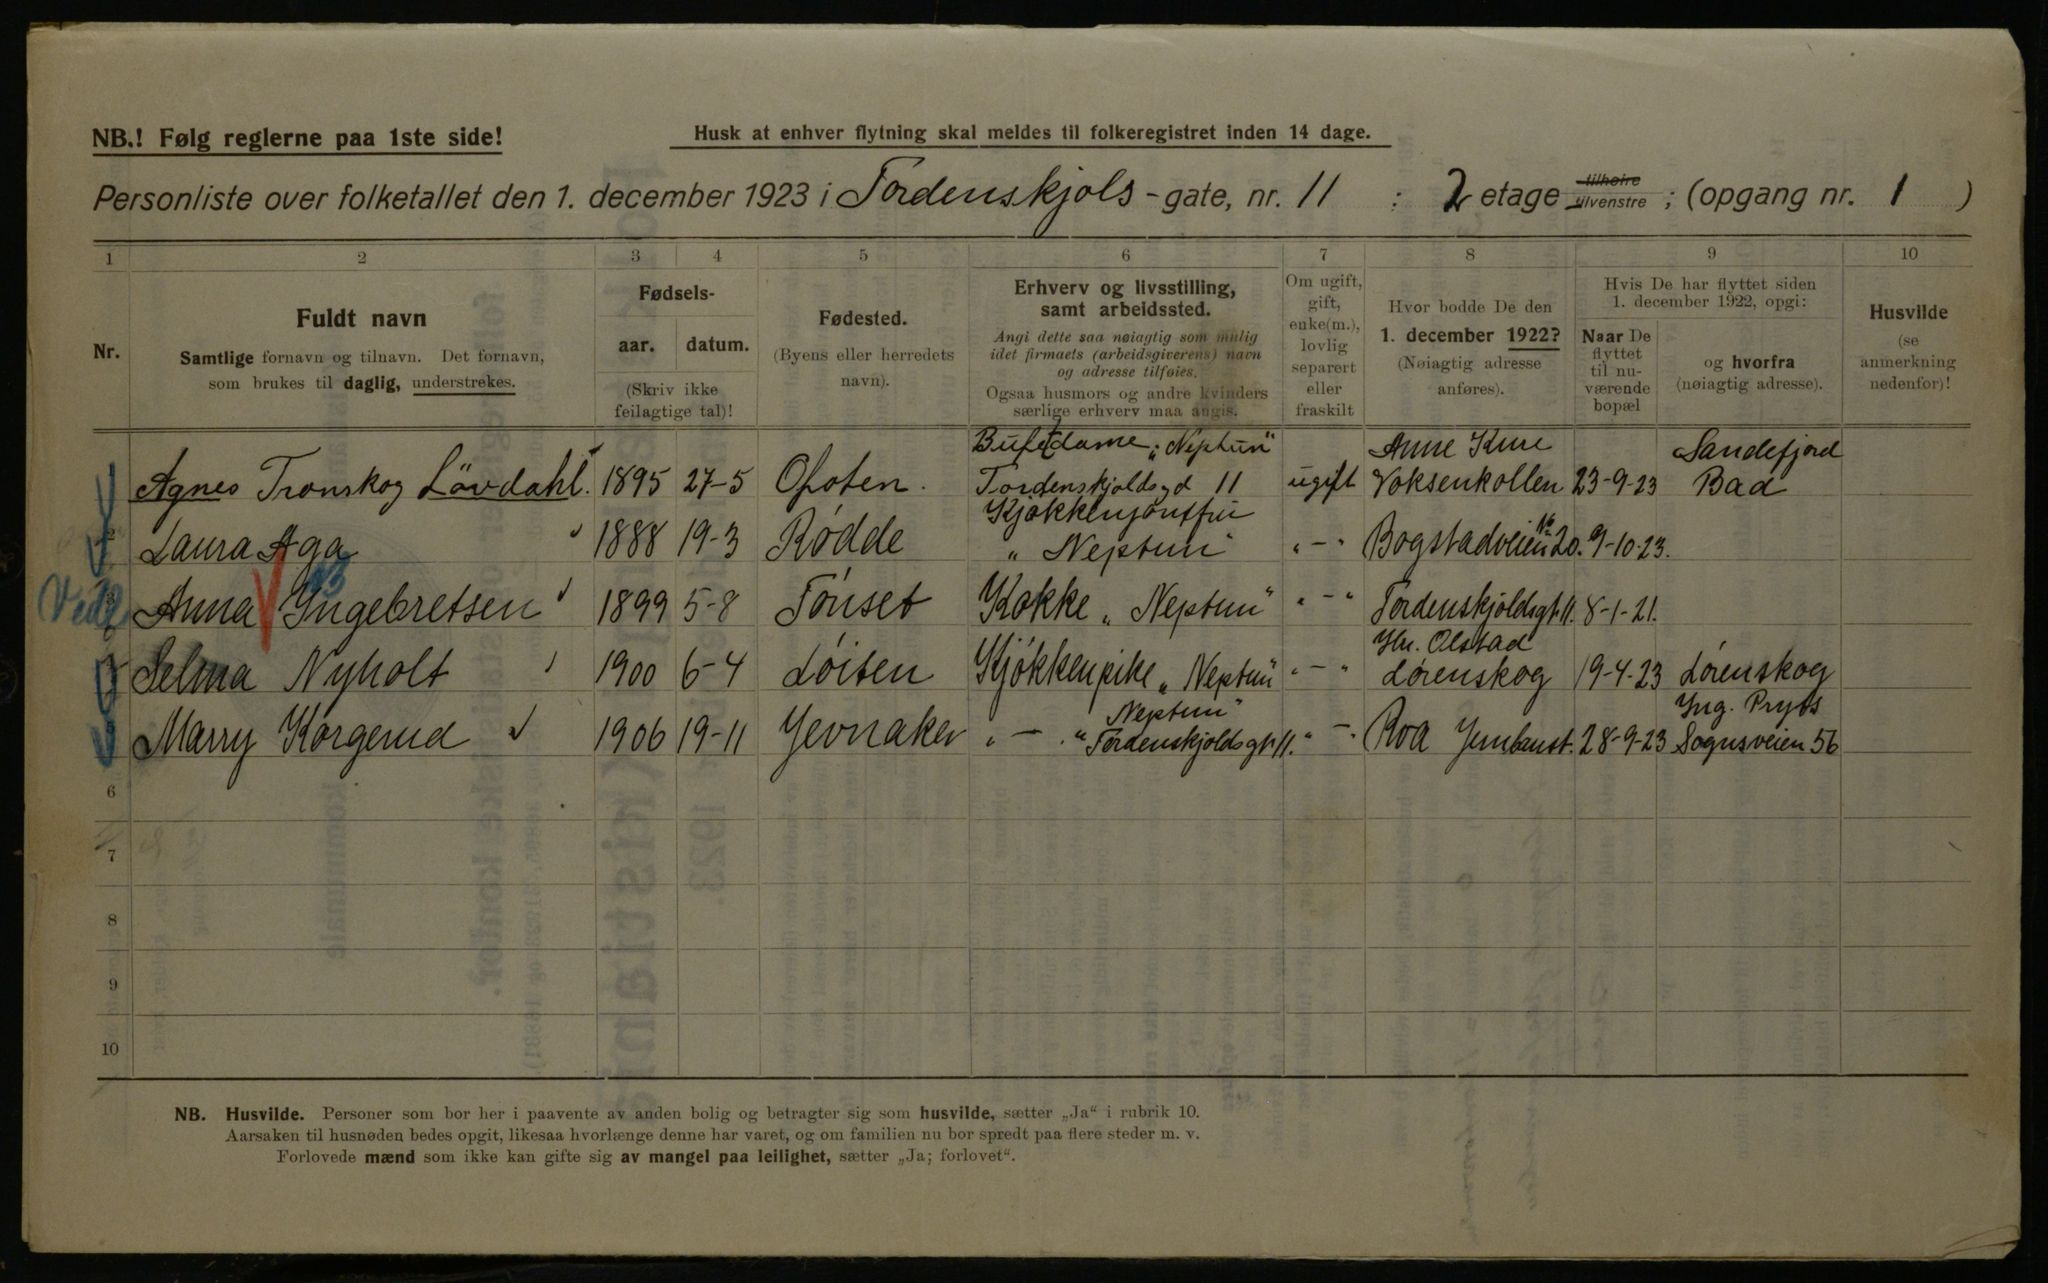 NB.! Følg reglerne paa 1ste side!
Husk at enhver flytning skal meldes til folkeregistret inden 14 dage.
Personliste over folketallet den 1. december 1923 i Tordenskjols - gate, nr. 11 : 2 etage tilhøire tilvenstre ; (opgang nr. 1 )
1 2 3 4 5 6 7 8 9 10
Nr.
Fuldt navn
Samtlige fornavn og tilnavn. Det fornavn,
som brukes til daglig, understrekes.
Fødsels-
aar. datum.
(Skriv ikke
feilagtige tal)!
Fødested.
(Byens eller herredets
navn).
Erhverv og livsstilling,
samt arbeidssted.
Angi dette saa nøiagtig som mulig
idet firmaets (arbeidsgiverens) navn
og adresse tilføies.
Ogsaa husmors og andre kvinders
særlige erhverv maa angis.
Om ugift,
gift,
enke(m.),
lovlig
separert
eller
fraskilt
Hvor bodde De den
1. december 1922?
(Nøiagtig adresse
anføres).
Hvis De har flyttet siden
1. december 1922, opgi:
Naar De
flyttet
til nu-
værende
bopæl
og hvorfra
(nøiagtig adresse).
Husvilde
(se
anmerkning
nedenfor)!
Bufetdame „Neptun" Anne Kure Sandefjord
Agnes Tronskog Lövdahl. 1895 27-5 Ofoten. Tordenskjoldsgd 11 ugift Voksenkollen 23-9-23 Bad
Kjøkkenjomfru
2 Laura Aga 1888 19-3 Rødde „Neptun" " - " Bogstadveien No 20. 9-10-23.
Anna Yngebretsen 1899 5-8 Tönset Kokke „Neptun" " - " Tordenskjoldsgt 11. 8-1-21.
Hr. Olstad
Selma Nyholt 1900 6-4 Löiten Kjøkkenpike „Neptun" " - " Lørenskog 19-4-23 Lørenskog
Neptun" Yng. Pryts
5 Marry Korgerud 1906 19-11 Jevnaker " - " Tordenskjoldsgt 11. " - " Roa Jernbanest. 28-9-23 Sognsveien 56
6
7
8
9
10
NB. Husvilde. Personer som bor her i paavente av anden bolig og betragter sig som husvilde, sætter „Ja" i rubrik 10.
Aarsaken til husnøden bedes opgit, likesaa hvorlænge denne har varet, og om familien nu bor spredt paa flere steder m. v.
Forlovede mænd som ikke kan gifte sig av mangel paa leilighet, sætter „Ja; forlovet".